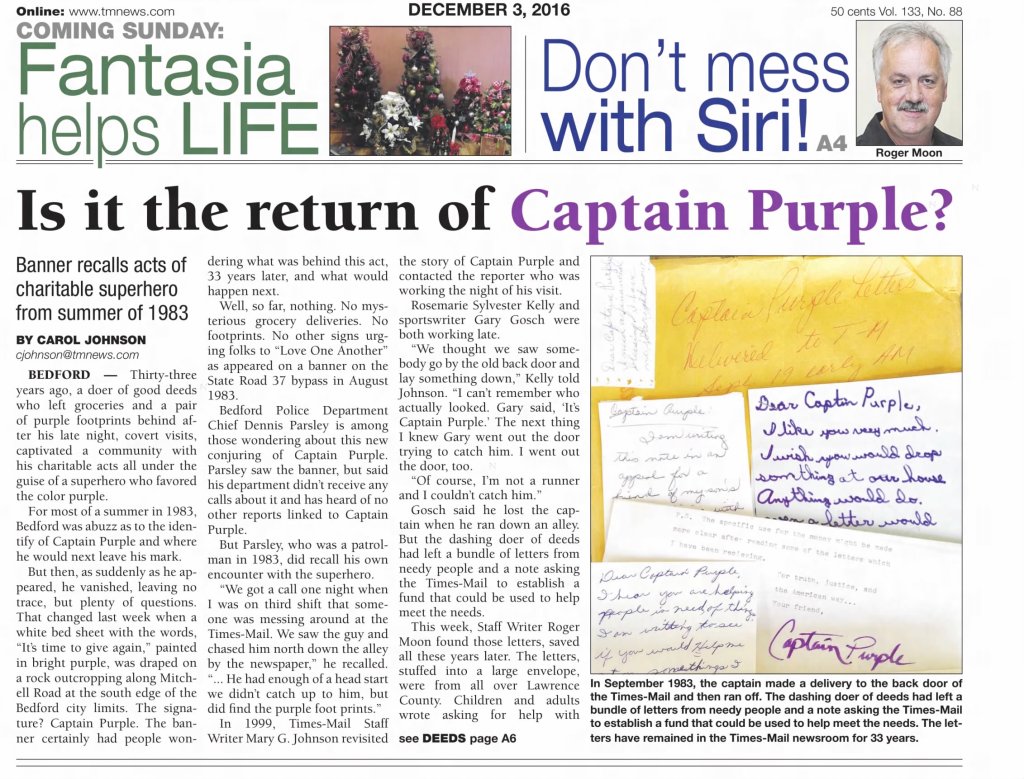 Online: www.tmnews.com
DECEMBER 3, 2016
50 cents Vol. 133, No. 88
COMING SUNDAY:
Fantasia
helps LIFE
Don't mess
with Siri! A4
Roger Moon
Is it the return of Captain Purple?
Banner recalls acts of
charitable superhero
from summer of 1983
BY CAROL JOHNSON
cjohnson@tmnews.com
BEDFORD — Thirty-three
years ago, a doer of good deeds
who left groceries and a pair
of purple footprints behind af-
ter his late night, covert visits,
captivated a community with
his charitable acts all under the
guise of a superhero who favored
the color purple.
For most of a summer in 1983,
Bedford was abuzz as to the iden-
tify of Captain Purple and where
he would next leave his mark.
But then, as suddenly as he ap-
peared, he vanished, leaving no
trace, but plenty of questions.
That changed last week when a
white bed sheet with the words,
"It's time to give again," painted
in bright purple, was draped on
a rock outcropping along Mitch-
ell Road at the south edge of the
Bedford city limits. The signa-
ture? Captain Purple. The ban-
ner certainly had people won-
dering what was behind this act,
33 years later, and what would
happen next.
Well, so far, nothing. No mys-
terious grocery deliveries. No
footprints. No other signs urg-
ing folks to "Love One Another"
as appeared on a banner on the
State Road 37 bypass in August
1983.
Bedford Police Department
Chief Dennis Parsley is among
those wondering about this new
conjuring of Captain Purple.
Parsley saw the banner, but said
his department didn't receive any
calls about it and has heard of no
other reports linked to Captain
Purple.
But Parsley, who was a patrol-
man in 1983, did recall his own
encounter with the superhero.
"We got a call one night when
I was on third shift that some-
one was messing around at the
Times-Mail. We saw the guy and
chased him north down the alley
by the newspaper," he recalled.
"... He had enough of a head start
we didn't catch up to him, but
did find the purple foot prints."
In 1999, Times-Mail Staff
Writer Mary G. Johnson revisited
the story of Captain Purple and
contacted the reporter who was
working the night of his visit.
Rosemarie Sylvester Kelly and
sportswriter Gary Gosch were
both working late.
"We thought we saw some-
body go by the old back door and
lay something down," Kelly told
Johnson. "I can't remember who
actually looked. Gary said, 'It's
Captain Purple.' The next thing
I knew Gary went out the door
trying to catch him. I went out
the door, too.
"Of course, I'm not a runner
and I couldn't catch him."
Gosch said he lost the cap-
tain when he ran down an alley.
But the dashing doer of deeds
had left a bundle of letters from
needy people and a note asking
the Times-Mail to establish a
fund that could be used to help
meet the needs.
This week, Staff Writer Roger
Moon found those letters, saved
all these years later. The letters,
stuffed into a large envelope,
were from all over Lawrence
County. Children and adults
wrote asking for help with
see DEEDS page A6
Captain Purple Letters
Delivered to T-M
Sept 19 early AM
Captain Purple:
I am writing
this note in an
appeal for a
Dear Captin Purple,
I like you very much.
I wish you would drop
somthing at our house
Anything would do.
even a letter would
P.S. The specific use for the money might be made
more clear after reading some of the letters which
I have been receiving.
For truth, justice, and
the American way...
Your friend,
Captain Purple
Dear Captain Purple,
I hear you are helping
people in need of things
I am writting to see
if you would Help me
somethings I
In September 1983, the captain made a delivery to the back door of
the Times-Mail and then ran off. The dashing doer of deeds had left a
bundle of letters from needy people and a note asking the Times-Mail
to establish a fund that could be used to help meet the needs. The let-
ters have remained in the Times-Mail newsroom for 33 years.